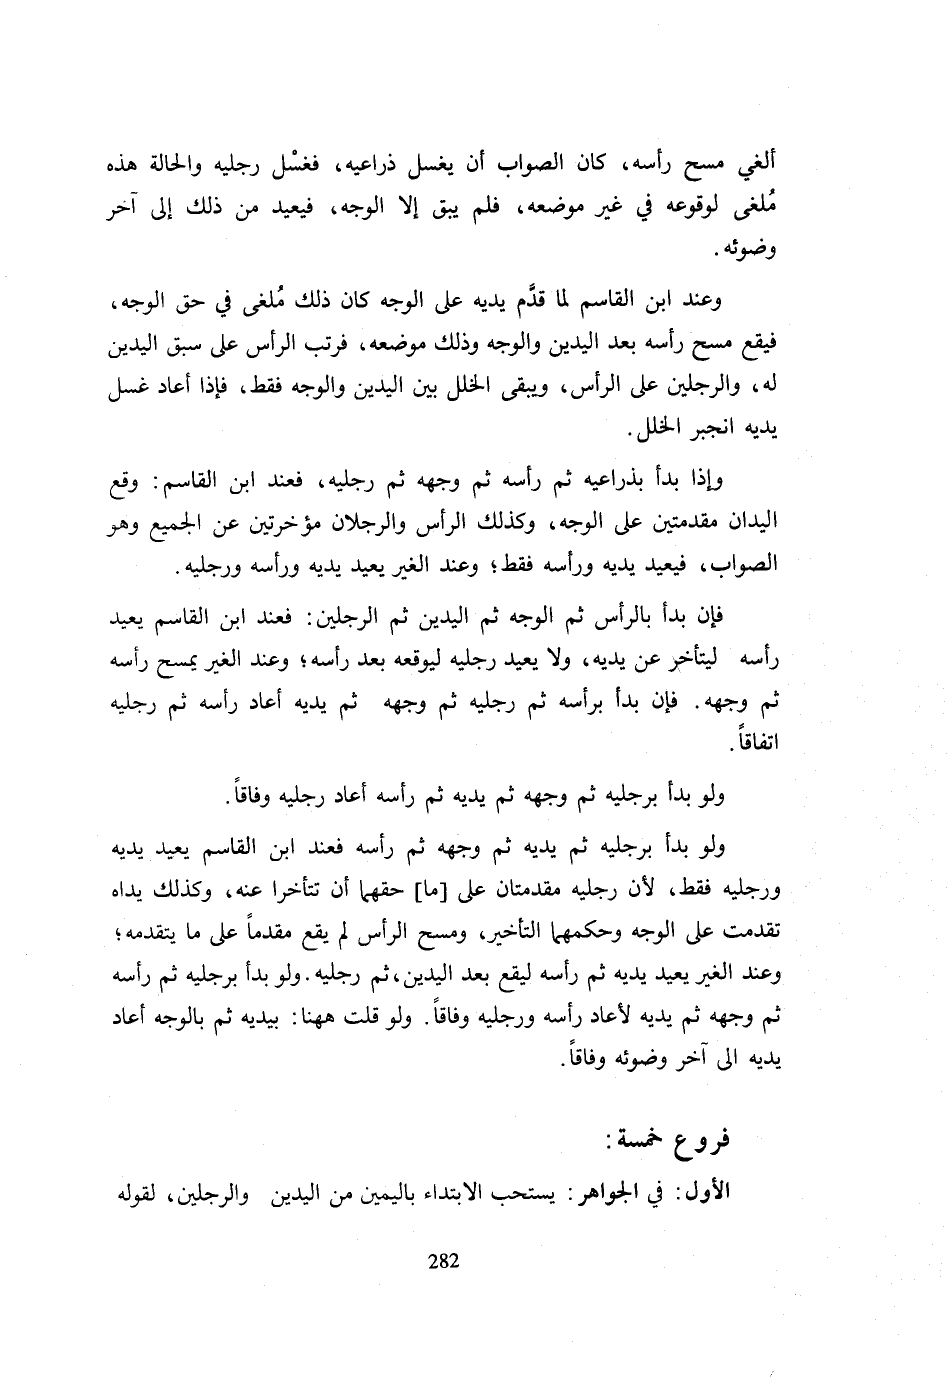 ألغي مسح رأسه، كان الصواب أن يغسل ذراعيه، فغسْل رجليه والحالة هذه
مُلغى لوقوعه في غير موضعه، فلم يبق إلا الوجه، فيعيد من ذلك إلى آخر
وضوئه.
وعند ابن القاسم لما قدَّم يديه على الوجه كان ذلك مُلغى في حق الوجه،
فيقع مسح رأسه بعد اليدين والوجه وذلك موضعه، فرتب الرأس على سبق اليدين
له، والرجلين على الرأس، ويبقى الخلل بين اليدين والوجه فقط، فإذا أعاد غسل
يديه انجبر الخلل.
وإذا بدأ بذراعيه ثم رأسه ثم وجهه ثم رجليه، فعند ابن القاسم: وقع
اليدان مقدمتين على الوجه، وكذلك الرأس والرجلان مؤخرتين عن الجميع وهو
الصواب، فيعيد يديه ورأسه فقط؛ وعند الغير يعيد يديه ورأسه ورجليه.
فإن بدأ بالرأس ثم الوجه ثم اليدين ثم الرجلين: فعند ابن القاسم يعيد
رأسه ليتأخر عن يديه، ولا يعيد رجليه ليوقعه بعد رأسه؛ وعند الغير يمسح رأسه
ثم وجهه. فإن بدأ برأسه ثم رجليه ثم وجهه ثم يديه أعاد رأسه ثم رجليه
اتفاقاً.
ولو بدأ برجليه ثم وجهه ثم يديه ثم رأسه أعاد رجليه وفاقاً.
ولو بدأ برجليه ثم يديه ثم وجهه ثم رأسه فعند ابن القاسم يعيد يديه
ورجليه فقط، لأن رجليه مقدمتان على [ما] حقهما أن تتأخرا عنه، وكذلك يداه
تقدمت على الوجه وحكمهما التأخير، ومسح الرأس لم يقع مقدماً على ما يتقدمه؛
وعند الغير يعيد يديه ثم رأسه ليقع بعد اليدين، ثم رجليه. ولو بدأ برجليه ثم رأسه
ثم وجهه ثم يديه لأعاد رأسه ورجليه وفاقاً. ولو قلت ههنا: بيديه ثم بالوجه أعاد
يديه الى آخر وضوئه وفاقاً.
فروع خمسة:
الأول: في الجواهر: يستحب الابتداء باليمين من اليدين والرجلين، لقوله
282